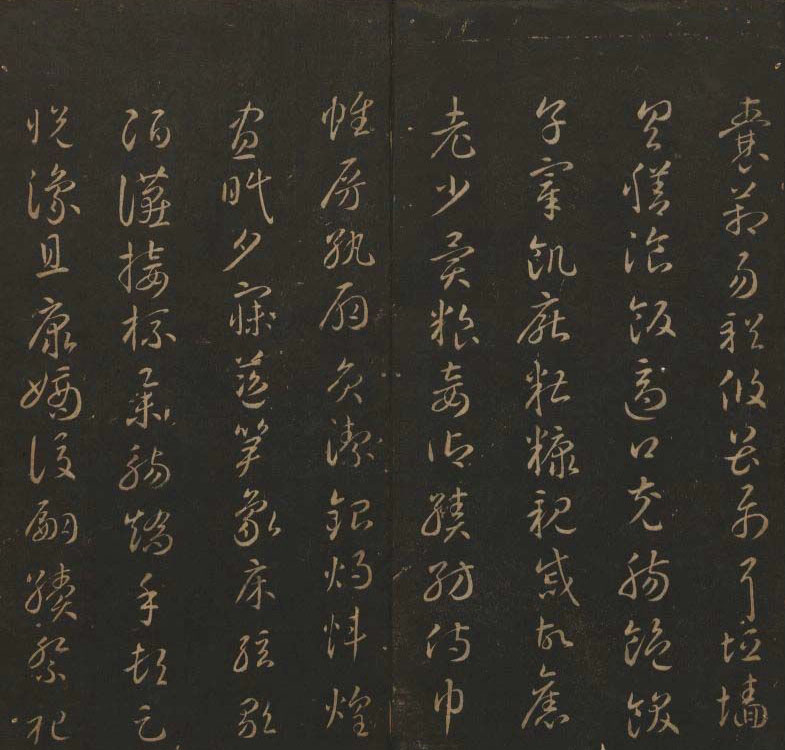 囊箱易輶攸畏屬耳垣墻
具膳飡飯適口充腸飽飫
亨宰飢厭糟糠親戚故舊
老少異粮妾御績紡侍巾
帷房紈扇員潔銀燭煒煌
晝眠夕寐藍笋象床弦歌
酒讌接杯舉觴矯手頓足
悅豫且康嫡後嗣續祭祀